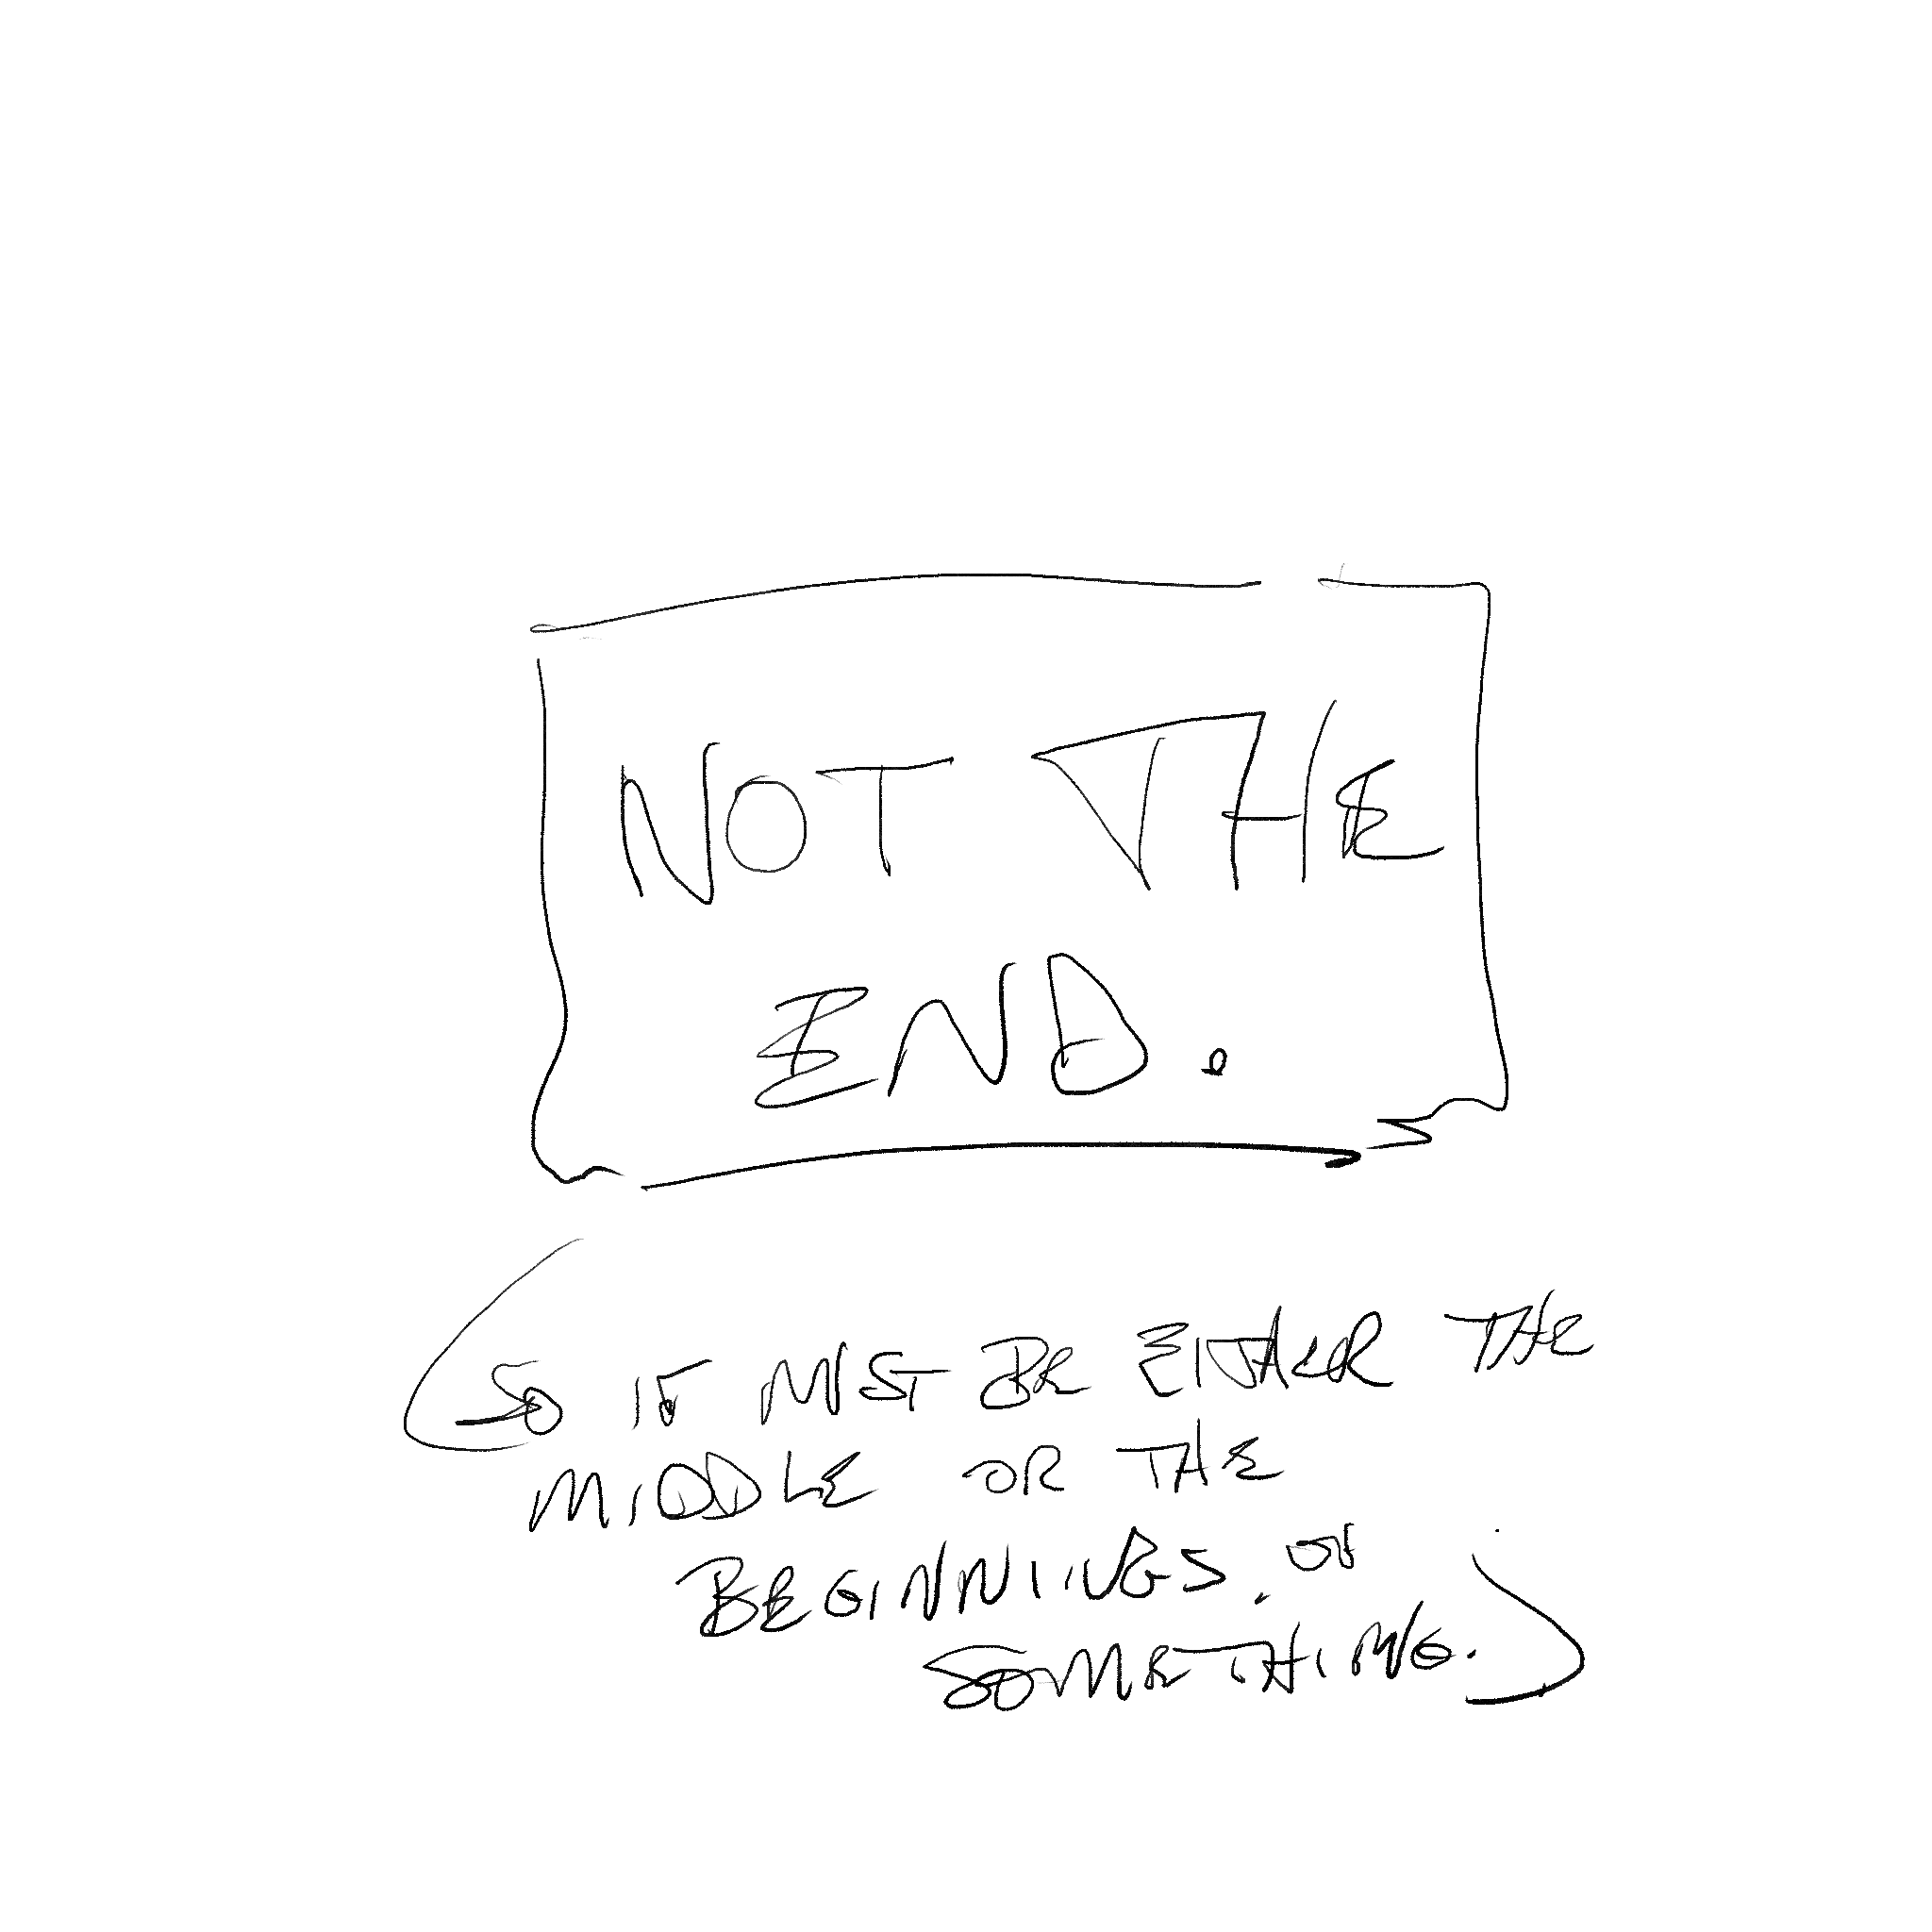 NOT THE
END.
(SO IT MUST BE EITHER THE
MIDDLE OR THE
BEGINNINGS. OF
SOMETHING.)